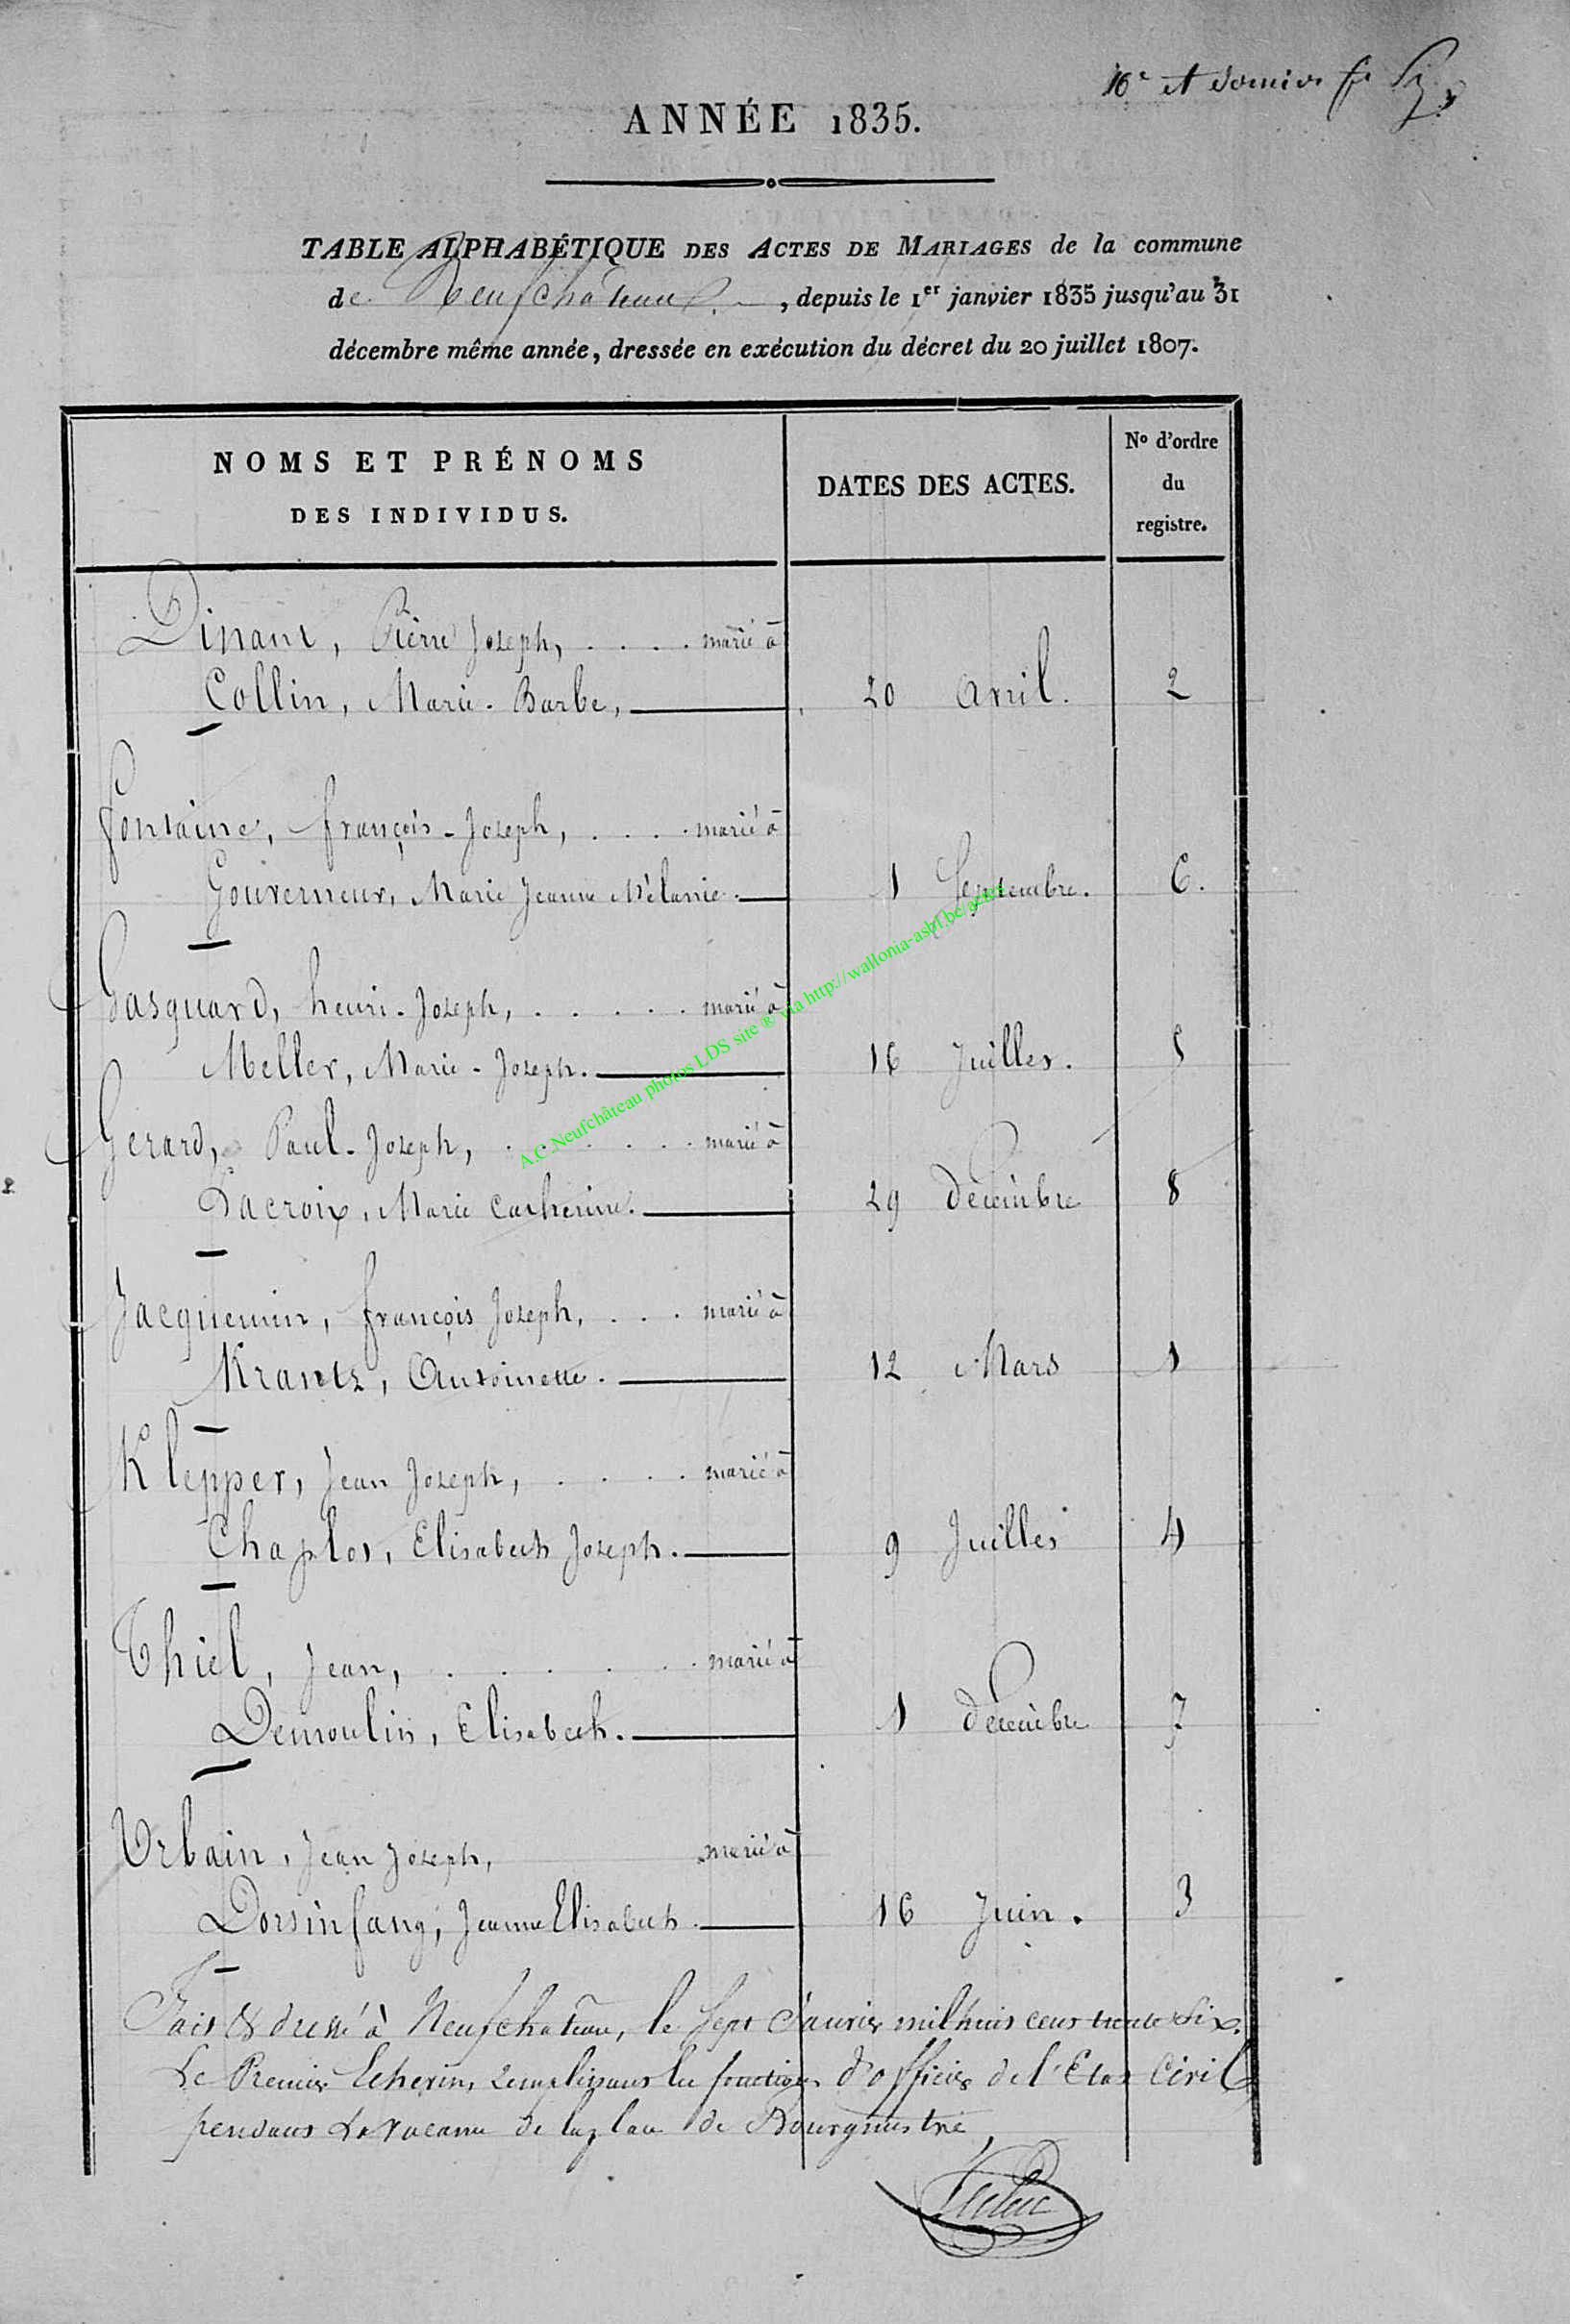 16e et dernier
ANNÉE 1835.
TABLE ALPHABÉTIQUE DES ACTES DE MARIAGES de la commune
de Neufchateau, depuis le 1er janvier 1835 jusqu'au 31
décembre même année, dressée en exécution du décret du 20 juillet 1807.
NOMS ET PRÉNOMS
DES INDIVIDUS.
DATES DES ACTES.
No d'ordre
du
registre.
Dinant, Pierre Joseph, . . . . marié à
Collin, Marie-Barbe, 20 avril. 2
fontaine, françois-Joseph, . . . . marié à
Gouverneur, Marie Jeanne Mélanie. 1 Septembre. 6.
Gasquard, henri-Joseph, . . . . . marié à
Meller, Marie-Joseph. 16 Juillet. 5
Gerard, Paul-Joseph, . . . . . marié à
Lacroix, Marie Catherine. 29 décembre 8
Jacquemin, françois Joseph, . . . marié à
Krantz, Antoinette. 12 Mars 1
Klepper, Jean Joseph, . . . . marié à
Chaplot, Elisabeth Joseph. 9 Juillet 4
Thiel, Jean, . . . . . . marié à
Demoulin, Elisabeth. 1 décembre 7
Urbain, Jean Joseph, marié à
Dorsinfang, Jeanne Elisabeth. 16 Juin. 3
Fait & dressé à Neufchateau, le Sept Janvier mil huit cent trente Six.
Le Premier Echevin, remplissant les fonctions d'officier de l'Etat Civil
pendant la vacance de la place de Bourgmestre,
A.C.Neufchâteau photos LDS site ® via http://wallonia-asbl.be/actes